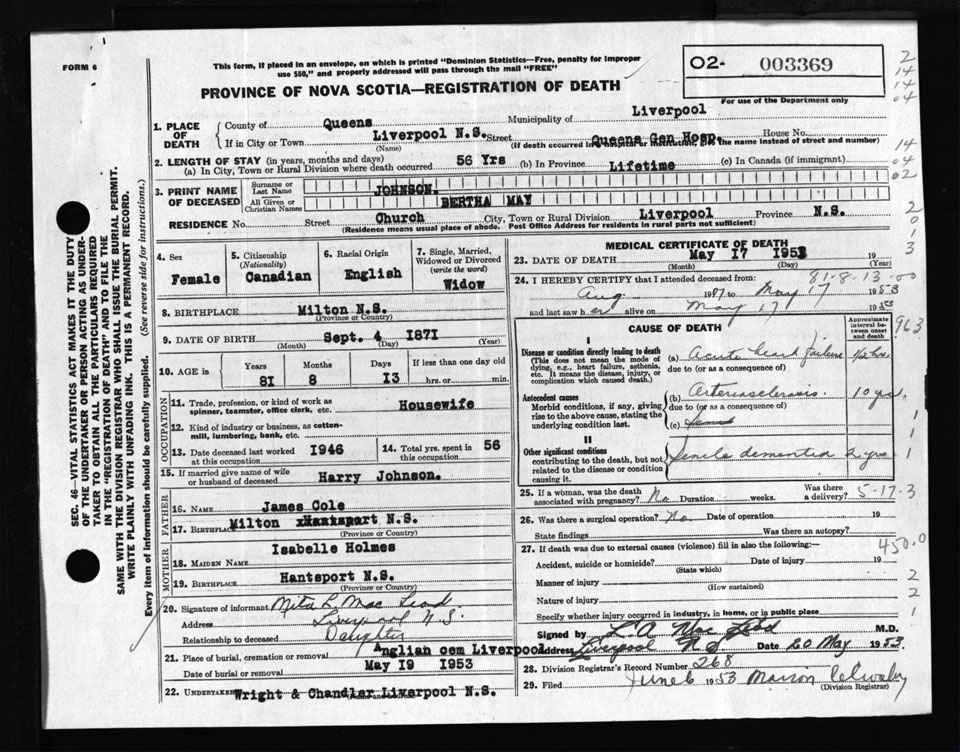 FORM 6
This form, if placed in an envelope, on which is printed "Dominion Statistics—Free, penalty for improper
use $50," and properly addressed will pass through the mail "FREE"
O2- 003369
For use of the Department only
PROVINCE OF NOVA SCOTIA—REGISTRATION OF DEATH
2
14
14
04
14
04
02
2
0
1
3
1. PLACE OF DEATH
County of Queens Municipality of Liverpool
If in City or Town Liverpool N.S. Street Queens Gen Hosp. House No.
(Name) (If death occurred in hospital or institution, give the name instead of street and number)
2. LENGTH OF STAY (in years, months and days)
(a) In City, Town or Rural Division where death occurred 56 Yrs (b) In Province Lifetime (c) In Canada (if immigrant)
3. PRINT NAME OF DECEASED
Surname or Last Name JOHNSON.
All Given or Christian Names BERTHA MAY
RESIDENCE No. Street Church City, Town or Rural Division Liverpool Province N.S.
(Residence means usual place of abode. Post Office Address for residents in rural parts not sufficient)
SEC. 46—VITAL STATISTICS ACT MAKES IT THE DUTY
OF THE UNDERTAKER OR PERSON ACTING AS UNDER-
TAKER TO OBTAIN ALL THE PARTICULARS REQUIRED
IN THE "REGISTRATION OF DEATH" AND TO FILE THE
SAME WITH THE DIVISION REGISTRAR WHO SHALL ISSUE THE BURIAL PERMIT.
WRITE PLAINLY WITH UNFADING INK. THIS IS A PERMANENT RECORD.
Every item of information should be carefully supplied. (See reverse side for instructions.)
4. Sex
Female
5. Citizenship
(Nationality)
Canadian
6. Racial Origin
English
7. Single, Married,
Widowed or Divorced
(write the word)
Widow
8. BIRTHPLACE Milton N.S.
(Province or Country)
9. DATE OF BIRTH Sept. 4 1871
(Month) (Day) (Year)
10. AGE in
Years Months Days If less than one day old
81 8 13 hrs. or min.
OCCUPATION
11. Trade, profession, or kind of work as
spinner, teamster, office clerk, etc. Housewife
12. Kind of industry or business, as cotton-
mill, lumbering, bank, etc.
13. Date deceased last worked
at this occupation 1946
14. Total yrs. spent in
this occupation 56
15. If married give name of wife
or husband of deceased Harry Johnson.
FATHER
16. Name James Cole
17. Birthplace Milton N.S.
(Province or Country)
MOTHER
Isabelle Holmes
18. MAIDEN NAME
19. BIRTHPLACE Hantsport N.S.
(Province or Country)
20. Signature of informant Nita L. Mac Leod
Address Liverpool N.S.
Relationship to deceased Daughter
21. Place of burial, cremation or removal Anglian cem Liverpool
Date of burial or removal May 19 1953
22. UNDERTAKER Wright & Chandler Liverpool N.S.
MEDICAL CERTIFICATE OF DEATH
23. DATE OF DEATH May 17 1953 19
(Month) (Day) (Year)
24. I HEREBY CERTIFY that I attended deceased from: 81-8-13-00
Aug to May 17 1953
and last saw h er alive on May 17 1953
CAUSE OF DEATH
Approximate
interval be-
tween onset
and death
963
I
Disease or condition directly leading to death
(This does not mean the mode of
dying, e.g., heart failure, asthenia,
etc. It means the disease, injury, or
complication which caused death.)
(a) Acute heart failure 1/2 hr.
due to (or as a consequence of)
Antecedent causes
Morbid conditions, if any, giving
rise to the above cause, stating the
underlying condition last.
(b) Arteriosclerosis. 10 yrs.
due to (or as a consequence of)
(c)
II
Other significant conditions
contributing to the death, but not
related to the disease or condition
causing it.
Senile dementia 2 yrs
1
1
1
25. If a woman, was the death
associated with pregnancy? No Duration weeks. Was there
a delivery? 5-17-3
26. Was there a surgical operation? No Date of operation 19
State findings Was there an autopsy?
27. If death was due to external causes (violence) fill in also the following:— 450.0
Accident, suicide or homicide? Date of injury 19
(State which)
Manner of injury 2
(How sustained)
Nature of injury 2
Specify whether injury occurred in industry, in home, or in public place 1
Signed by L A Mac Leod M.D.
Address Liverpool N S Date 20 May 1953.
28. Division Registrar's Record Number 268
29. Filed June 6 1953 Marion
(Division Registrar)